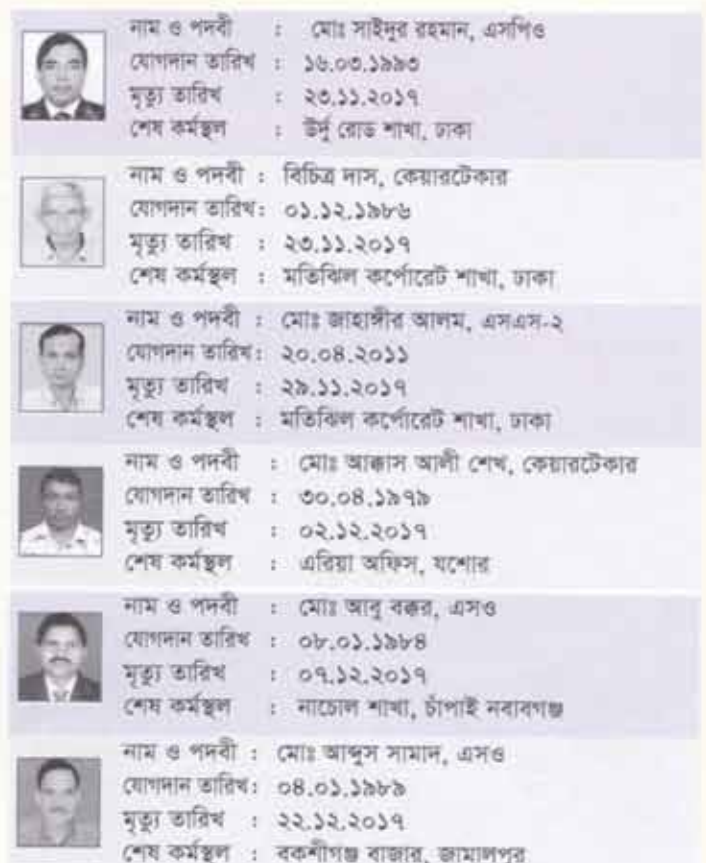 নাম ও পদবী : মোঃ সাইদুর রহমান, এসপিও
যোগদান তারিখ : ১৬.০৩.১৯৯৩
মৃত্যু তারিখ : ২৩.১১.২০১৭
শেষ কর্মস্থল : উর্দু রোড শাখা, ঢাকা
নাম ও পদবী : বিচিত্র দাস, কেয়ারটেকার
যোগদান তারিখ: ০১.১২.১৯৮৬
মৃত্যু তারিখ : ২৩.১১.২০১৭
শেষ কর্মস্থল : মতিঝিল কর্পোরেট শাখা, ঢাকা
নাম ও পদবী : মোঃ জাহাঙ্গীর আলম, এসএস-২
যোগদান তারিখ: ২০.০৪.২০১১
মৃত্যু তারিখ : ২৯.১১.২০১৭
শেষ কর্মস্থল : মতিঝিল কর্পোরেট শাখা, ঢাকা
নাম ও পদবী : মোঃ আক্কাস আলী শেখ, কেয়ারটেকার
যোগদান তারিখ : ৩০.০৪.১৯৭৯
মৃত্যু তারিখ : ০২.১২.২০১৭
শেষ কর্মস্থল : এরিয়া অফিস, যশোর
নাম ও পদবী : মোঃ আবু বক্কর, এসও
যোগদান তারিখ : ০৮.০১.১৯৮৪
মৃত্যু তারিখ : ০৭.১২.২০১৭
শেষ কর্মস্থল : নাচোল শাখা, চাঁপাই নবাবগঞ্জ
নাম ও পদবী : মোঃ আব্দুস সামাদ, এসও
যোগদান তারিখ: ০৪.০১.১৯৮৯
মৃত্যু তারিখ : ২২.১২.২০১৭
শেষ কর্মস্থল : বকশীগঞ্জ বাজার, জামালপুর